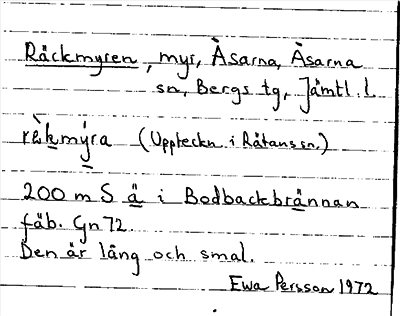 Räckmyren, myr, Åsarna, Åsarna
sn, Bergs tg, Jämtl. l.
rèkmýra (Uppteckn. i Rätanssn.)
200 m S ä i Bodbackbrännan
fäb. Gn 72.
Den är lång och smal.
Ewa Persson 1972